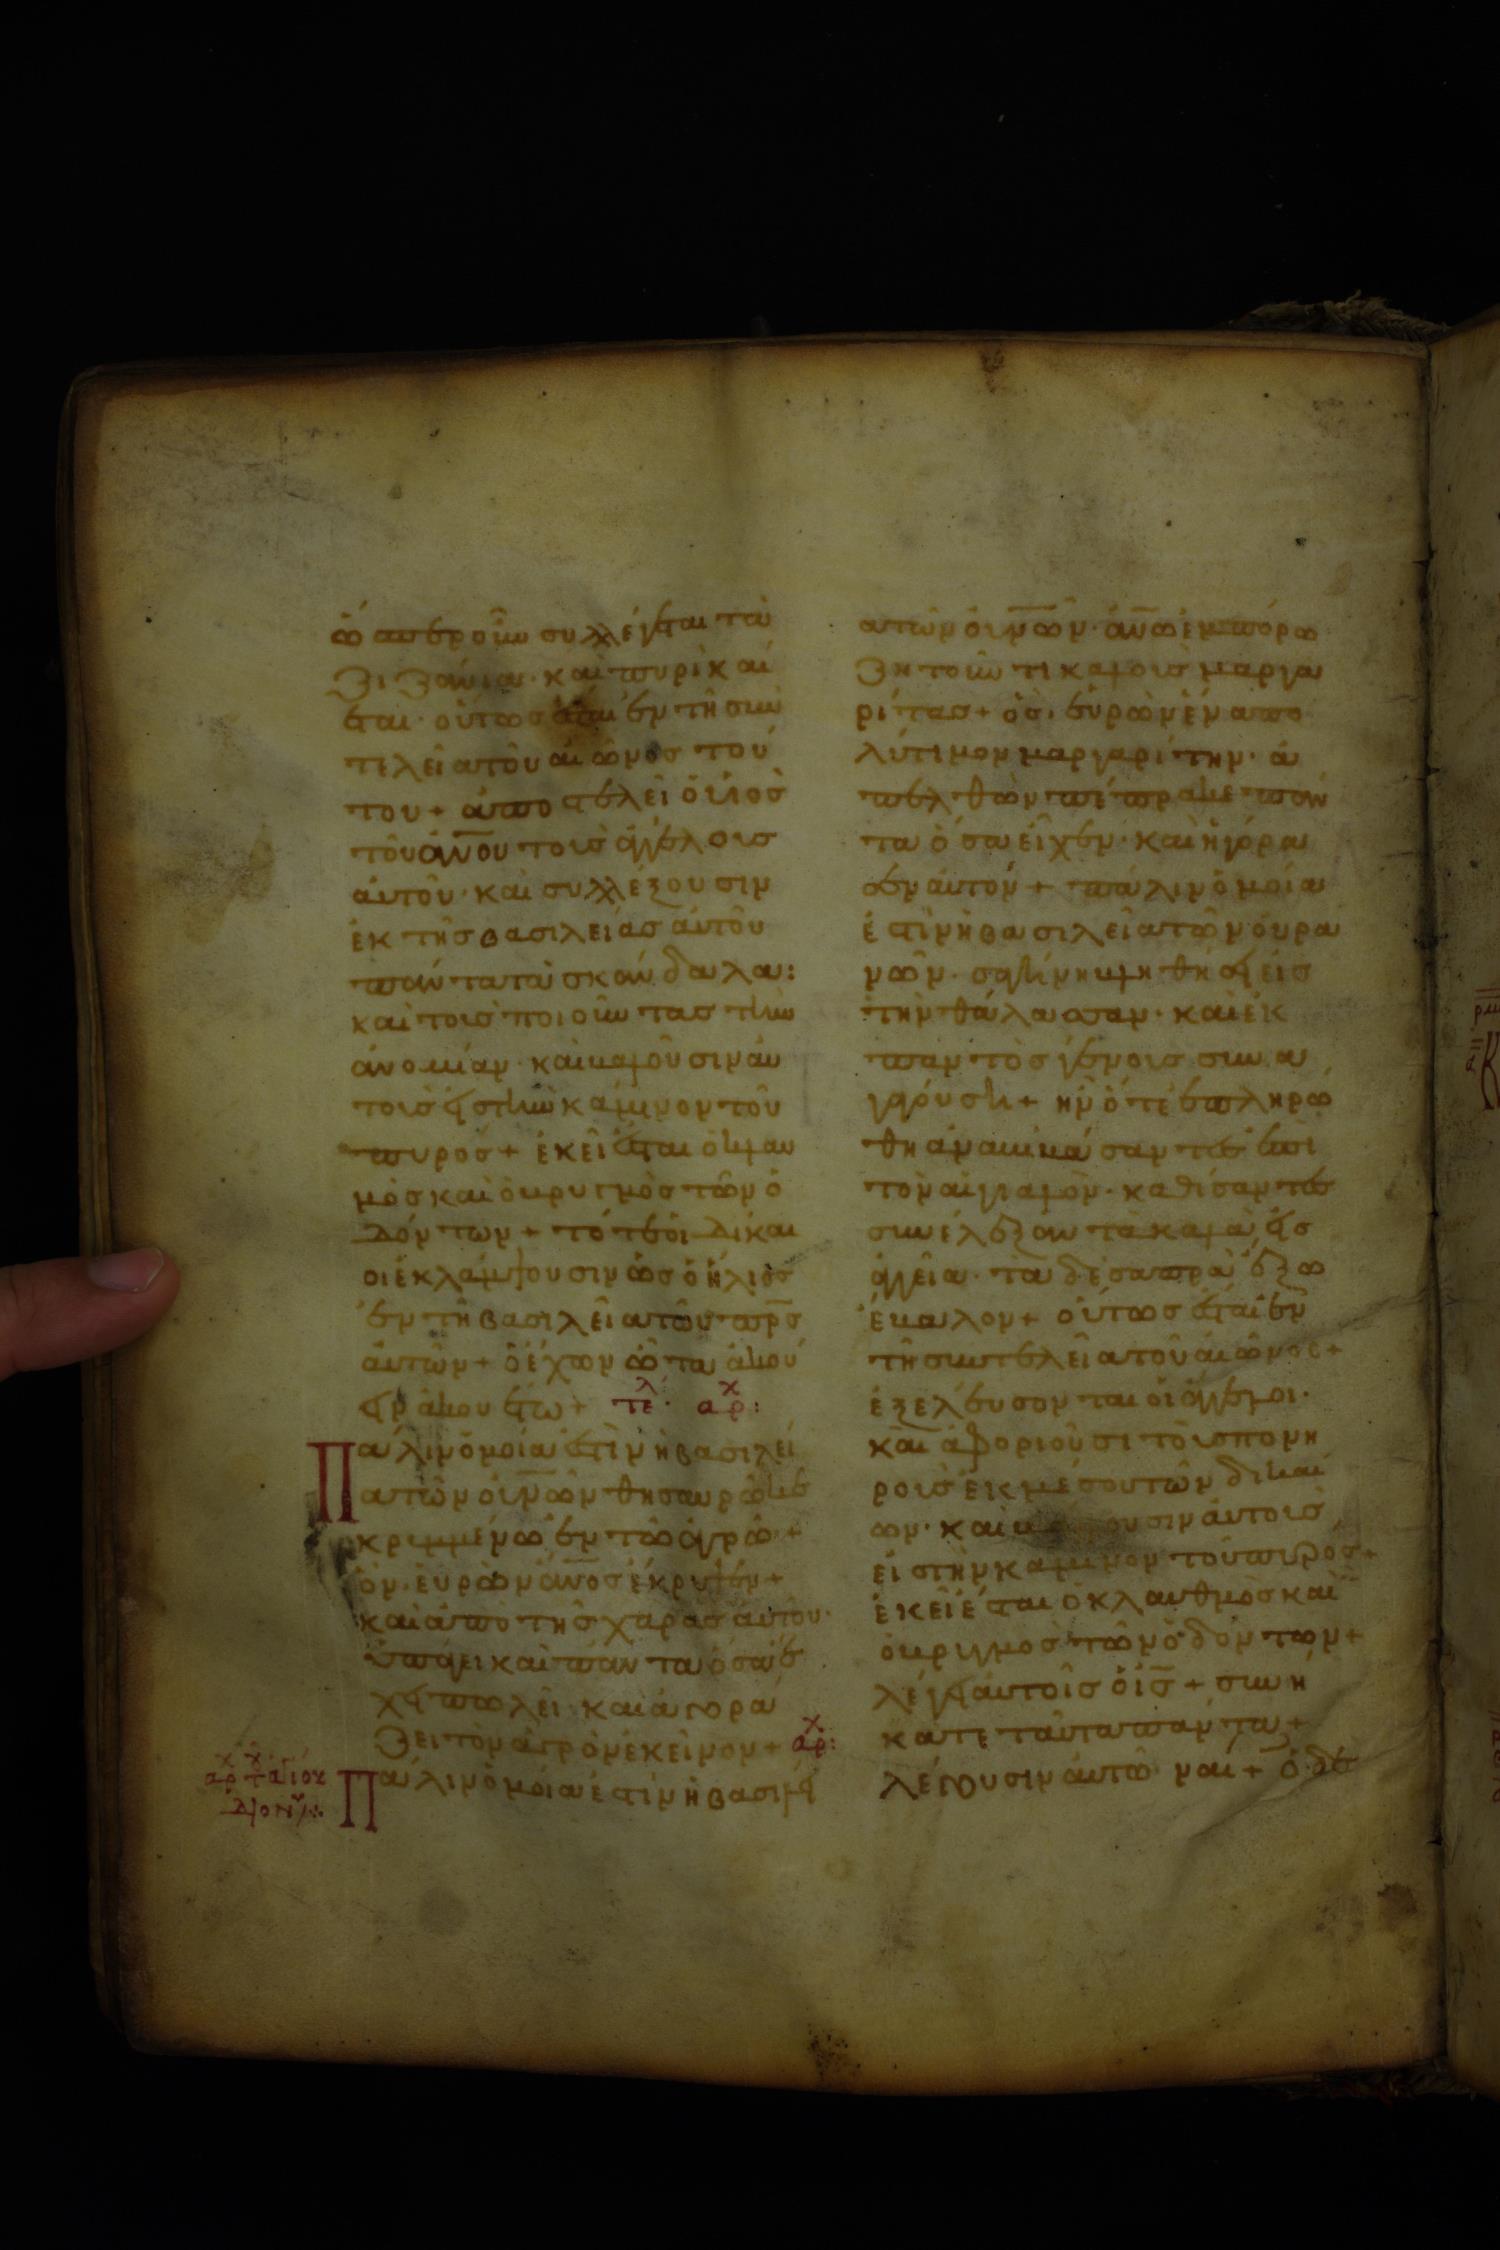 ὥσπερ οὖν συλλέγεται τὰ
ζιζάνια· καὶ πυρὶ καί
εται· οὕτως ἔσται ἐν τῇ συν
τελείᾳ τοῦ αἰῶνος τού
του + ἀποστελεῖ ὁ υἱὸς
τοῦ ἀνου τοὺς ἀγγέλους
αὐτοῦ· καὶ συλλέξουσιν
ἐκ τῆς βασιλείας αὐτοῦ
πάντα τὰ σκάνδαλα:
καὶ τοὺς ποιοῦντας τὴν
ἀνομίαν· καὶ βαλοῦσιν αὐ
τοὺς εἰς τὴν κάμινον τοῦ
πυρός + ἐκεῖ ἔσται ὁ κλαυ
μὸς καὶ ὁ βρυγμὸς τῶν ὀ
δόντων + τότε οἱ δίκαι
οι ἐκλάμψουσιν ὡς ὁ ἥλιος
ἐν τῇ βασιλείᾳ τοῦ πρς
αὐτῶν + ὁ ἔχων ὦτα ἀκού
ειν ἀκουέτω + τελ· αρχ:
Πάλιν ὁμοία ἐστὶν ἡ βασιλεί
α τῶν οὐνῶν θησαυρῷ κε
κρυμμένῳ ἐν τῷ ἀγρῷ· +
ὃν εὑρὼν ἀνος ἔκρυψεν +
καὶ ἀπὸ τῆς χαρᾶς αὐτοῦ·
ὑπάγει καὶ πάντα ὅσα ἔ
χει πωλεῖ καὶ ἀγορά
ζει τὸν ἀγρὸν ἐκεῖνον + αρχ:
αρχ τ ἁγίου
Διονυ:
Πάλιν ὁμοία ἐστὶν ἡ βασιλεί
α τῶν οὐνῶν· ἀνω ἐμπόρω
ζητοῦντι καλοὺς μαργα
ρίτας + ὃς· εὑρὼν ἕνα πο
λύτιμον μαργαρίτην· ἀ
πελθὼν πέπρακε πάν
τα ὅσα εἶχεν· καὶ ἠγόρα
σεν αὐτόν + πάλιν ὁμοία
ἐστὶν ἡ βασιλεία τῶν οὐρα
νῶν· σαγήνῃ βληθήσῃ εἰς
τὴν θάλασσαν· καὶ ἐκ
παντὸς γένους συνα
γαγούσῃ + ἣν ὅτε ἐπληρώ
θη ἀναβιβάσαντες ἐπὶ
τὸν αἰγιαλὸν· καθίσαντες
συνέλεξαν τὰ καλὰ εἰς
ἀγγεῖα· τὰ δὲ σαπρὰ ἔξω
ἔβαλον + οὕτως ἔσται ἐν
τῇ συντελείᾳ τοῦ αἰῶνος +
ἐξελεύσονται οἱ ἄγγελοι·
καὶ ἀφοριοῦσι τοὺς πονη
ροὺς ἐκ μέσου τῶν δικαί
ων· καὶ βαλοῦσιν αὐτοὺς
εἰς τὴν κάμινον τοῦ πυρός +
ἐκεῖ ἔσται ὁ κλαυθμὸς καὶ
ὁ βρυγμὸς τῶν ὀδόντων +
λέγει αὐτοῖς ὁ ις + συνή
κατε ταῦτα πάντα +
λέγουσιν αὐτῷ ναι + ὁ δὲ